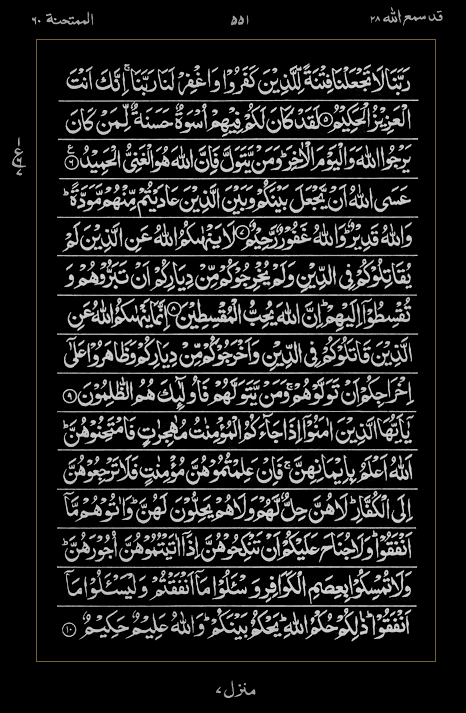 قد سمع الله ٢٨
٥٥١
الممتحنة ٦٠
رَبَّنَا لَا تَجْعَلْنَا فِتْنَةً لِّلَّذِيْنَ كَفَرُوْا وَاغْفِرْ لَنَا رَبَّنَا ۚ اِنَّكَ اَنْتَ
الْعَزِيْزُ الْحَكِيْمُ ۝٥ لَقَدْ كَانَ لَكُمْ فِيْهِمْ اُسْوَةٌ حَسَنَةٌ لِّمَنْ كَانَ
يَرْجُوا اللّٰهَ وَالْيَوْمَ الْاٰخِرَ ؕ وَمَنْ يَّتَوَلَّ فَاِنَّ اللّٰهَ هُوَ الْغَنِىُّ الْحَمِيْدُ ۝٦
عَسَى اللّٰهُ اَنْ يَّجْعَلَ بَيْنَكُمْ وَبَيْنَ الَّذِيْنَ عَادَيْتُمْ مِّنْهُمْ مَّوَدَّةً ؕ
وَاللّٰهُ قَدِيْرٌ ؕ وَاللّٰهُ غَفُوْرٌ رَّحِيْمٌ ۝٧ لَا يَنْهٰىكُمُ اللّٰهُ عَنِ الَّذِيْنَ لَمْ
يُقَاتِلُوْكُمْ فِى الدِّيْنِ وَلَمْ يُخْرِجُوْكُمْ مِّنْ دِيَارِكُمْ اَنْ تَبَرُّوْهُمْ وَ
تُقْسِطُوْۤا اِلَيْهِمْ ؕ اِنَّ اللّٰهَ يُحِبُّ الْمُقْسِطِيْنَ ۝٨ اِنَّمَا يَنْهٰىكُمُ اللّٰهُ عَنِ
الَّذِيْنَ قَاتَلُوْكُمْ فِى الدِّيْنِ وَاَخْرَجُوْكُمْ مِّنْ دِيَارِكُمْ وَظَاهَرُوْا عَلٰٓى
اِخْرَاجِكُمْ اَنْ تَوَلَّوْهُمْ ۚ وَمَنْ يَّتَوَلَّهُمْ فَاُولٰٓئِكَ هُمُ الظّٰلِمُوْنَ ۝٩
يٰۤاَيُّهَا الَّذِيْنَ اٰمَنُوْۤا اِذَا جَآءَكُمُ الْمُؤْمِنٰتُ مُهٰجِرٰتٍ فَامْتَحِنُوْهُنَّ ؕ
اَللّٰهُ اَعْلَمُ بِاِيْمَانِهِنَّ ۚ فَاِنْ عَلِمْتُمُوْهُنَّ مُؤْمِنٰتٍ فَلَا تَرْجِعُوْهُنَّ
اِلَى الْكُفَّارِ ؕ لَا هُنَّ حِلٌّ لَّهُمْ وَلَا هُمْ يَحِلُّوْنَ لَهُنَّ ؕ وَاٰتُوْهُمْ مَّاۤ
اَنْفَقُوْا ؕ وَلَا جُنَاحَ عَلَيْكُمْ اَنْ تَنْكِحُوْهُنَّ اِذَاۤ اٰتَيْتُمُوْهُنَّ اُجُوْرَهُنَّ ؕ
وَلَا تُمْسِكُوْا بِعِصَمِ الْكَوَافِرِ وَ سْئَلُوْا مَاۤ اَنْفَقْتُمْ وَلْيَسْئَلُوْا مَاۤ
اَنْفَقُوْا ؕ ذٰلِكُمْ حُكْمُ اللّٰهِ ؕ يَحْكُمُ بَيْنَكُمْ ؕ وَاللّٰهُ عَلِيْمٌ حَكِيْمٌ ۝١٠
منزل ٧